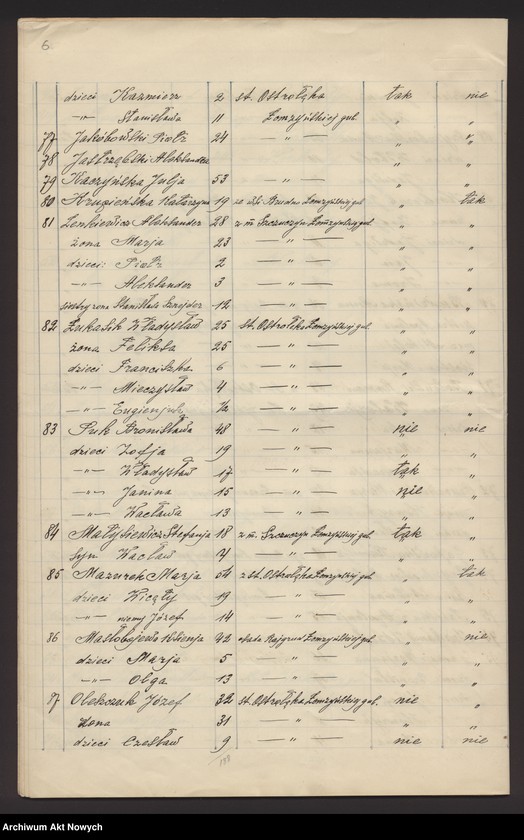 6.
dzieci Kazmierz 2 st. Ostrołęka tak nie
-"- Stanisława 11 Łomżyńskiej gub. " "
77 Jakóbowski Piotr 24 — " — " "
78 Jastrzębski Aleksander " "
79 Kaczyńska Julja 53 — " — " "
80 Katarzyna 19 Łomżyńskiej gub. " tak
81 Lenkiewicz Aleksander 28 z m. Szczuczyn Łomżyńskiej gub. " "
żona Marja 23 — " — " "
dzieci: Piotr 2 — " — " "
-"- Aleksander 3 — " — " "
siostry żona Stanisława 12 — " — " "
82 Łukasik Władysław 25 st. Ostrołęka Łomżyńskiej gub. " "
żona Feliksa 25 — " — " "
dzieci Franciszka 6 — " — " "
-"- Mieczysław 4 — " — " "
-"- Eugenjusz ½ — " — " "
83 Puk Bronisława 48 — " — nie nie
dzieci Zofja 19 — " — " "
-"- Władysław 17 — " — tak "
-"- Janina 15 — " — nie "
-"- Wacława 13 — " — " "
84 Matysiewicz Stefanja 18 z m. Szczuczyn Łomżyńskiej gub. tak "
syn Wacław 4 — " — " "
85 Mazurek Marja 54 z st. Ostrołęka Łomżyńskiej gub. " tak
dzieci Wicęty 19 — " — " "
-"- niemy Józef 14 — " — " "
86 Ksienja 42 osada Rajgrod Łomżyńskiej gub. " nie
dzieci Marja 5 — " — " "
-"- Olga 13 — " — " "
87 Olekszuk Józef 32 st. Ostrołęka Łomżyńskiej gub. nie "
żona 31 — " — " "
dzieci Czesław 9 — " — nie nie
188
Archiwum Akt Nowych